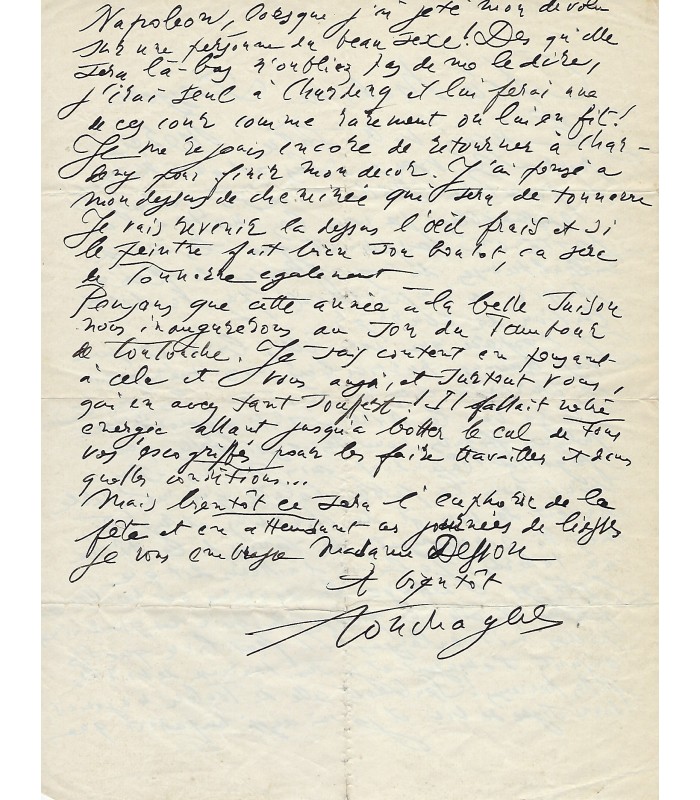 Napoleon, lorsque j'ai jeté mon devolu
sur une personne du beau sexe! Des qu'elle
sera là-bas n'oubliez pas de me le dire,
j'irai seul à Chardeny et lui ferai une
de ces cour comme rarement on lui en fit!
Je me rejouis encore de retourner à Char-
deny pour finir mon decor. J'ai pensé a
mon dessus de cheminée qui sera de tonnerre
Je vais revenir la dessus l'œil frais et si
le peintre fait bien son boulot, ca sera
de Tonnerre egalement
Pensons que cette année à la belle saison
nous inaugurerons au son du Tambour
de . Je suis content en pensant
à cela et vous aussi, et surtout vous,
qui en avez tant souffert! Il fallait votre
energie allant jusqu'à botter le cul de tous
vos escogriffes pour les faire travailler et dans
quelles conditions...
Mais bientôt ce sera l'euphorie de la
fête et en attendant ces journées de liesses
je vous embrasse Madame
A bientôt
Touchagues